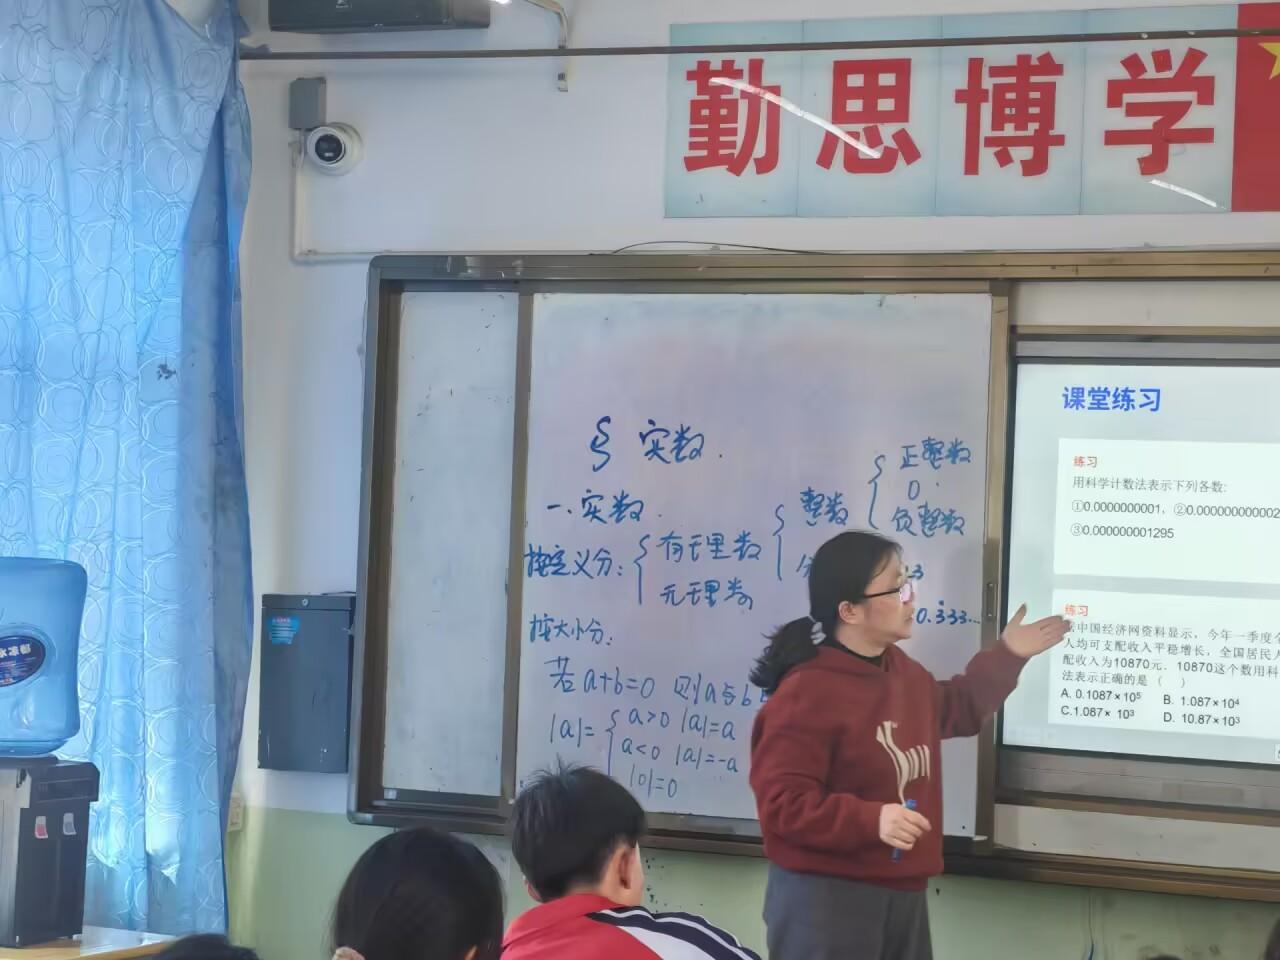 勤思博学
§ 实数.
一、实数.
按定义分:
有理数
无理数
整数
正整数
0
负整数
0.333…
按大小分:
若a+b=0 则a与b
|a|=
a>0 |a|=a
a<0 |a|=-a
|0|=0
课堂练习
练习
用科学计数法表示下列各数:
①0.0000000001, ②0.000000000002
③0.000000001295
练习
中国经济网资料显示, 今年一季度
人均可支配收入平稳增长, 全国居民
配收入为10870元. 10870这个数用科
法表示正确的是( )
A. 0.1087×10⁵ B. 1.087×10⁴
C.1.087× 10³ D. 10.87×10³